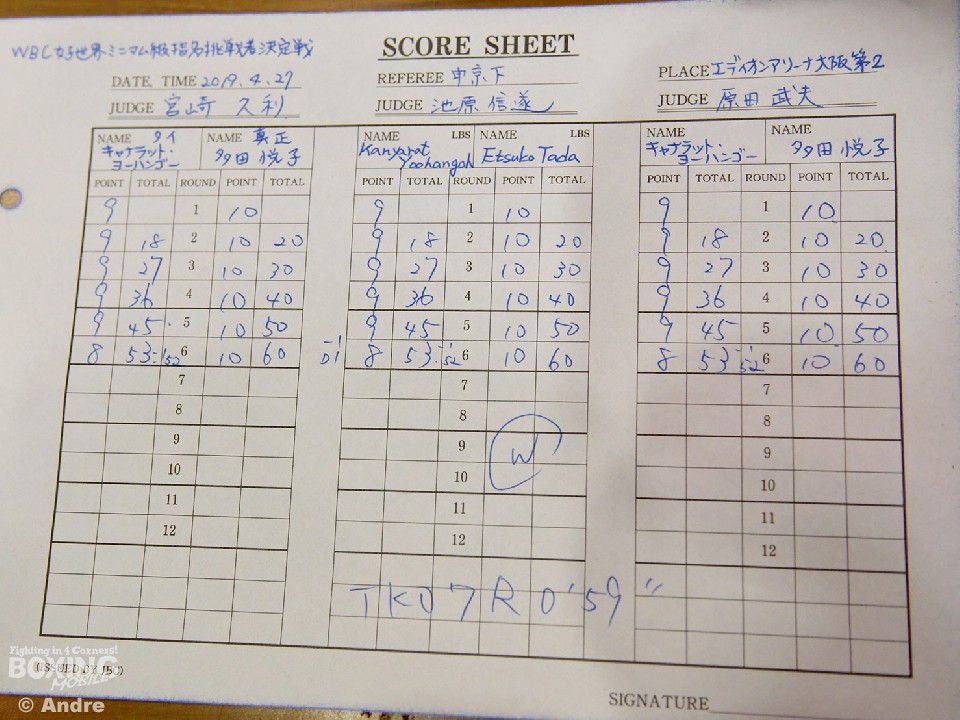 WBC女子世界ミニマム級指名挑戦者決定戦
SCORE SHEET
DATE, TIME 2019.4.27
REFEREE 中京下
PLACE エディオンアリーナ大阪第2
JUDGE 宮崎久利
JUDGE 池原信遂
JUDGE 原田武夫
NAME タイ NAME 真正 NAME LBS NAME LBS NAME NAME
キャナラット・ヨーハンゴー 多田悦子 Kanyarat Yoohangoh Etsuko Tada キャナラット・ヨーハンゴー 多田悦子
POINT TOTAL ROUND POINT TOTAL POINT TOTAL ROUND POINT TOTAL POINT TOTAL ROUND POINT TOTAL
9 1 10 9 1 10 9 1 10
9 18 2 10 20 9 18 2 10 20 9 18 2 10 20
9 27 3 10 30 9 27 3 10 30 9 27 3 10 30
9 36 4 10 40 9 36 4 10 40 9 36 4 10 40
9 45 5 10 50 9 45 5 10 50 9 45 5 10 50
8 53 -1 52 6 10 60 D -1 8 53 -1 52 6 10 60 8 53 -1 52 6 10 60
7 7 7
8 8 8
9 9 9
W
10 10 10
11 11 11
12 12 12
TKO 7R 0'59"
(ISSUED BY JBC)
SIGNATURE
Fighting in 4 Corners!
BOXING
MOBILE
© Andre